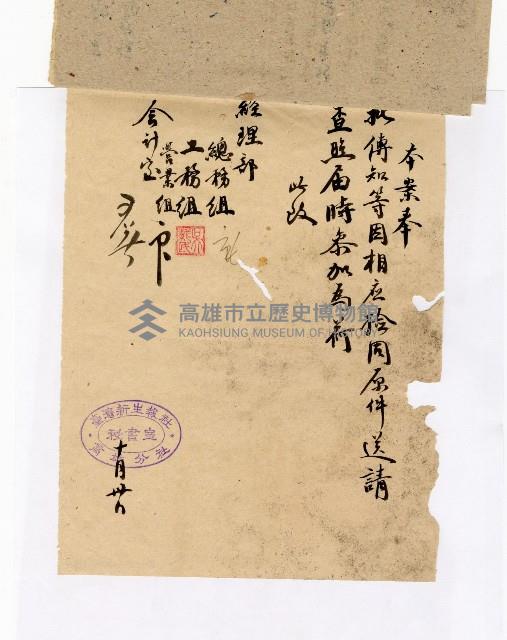 本案奉
批傳知等因相应檢同原件送請
查照屆時參加為荷
此致
經理部
總務組
工務組
營業組
会计室
高雄市立歷史博物館
KAOHSIUNG MUSEUM OF HISTORY
臺灣新生報社
秘書室
高雄分社
十月卅日